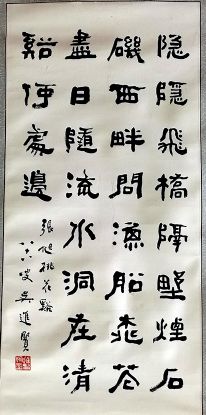 隱隱飛橋隔野煙石
磯西畔問漁船桃花
盡日隨流水洞在清
谿何處邊
張旭桃花谿
八六叟吳進賢